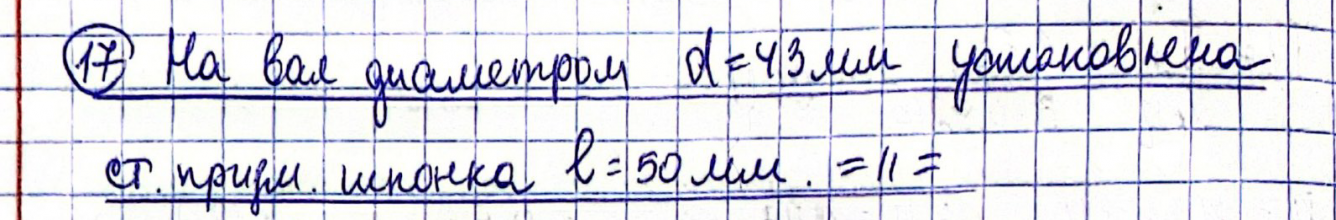 17 На вал диаметром d=43мм установлена
ст. призм. шпонка l=50мм. =11=